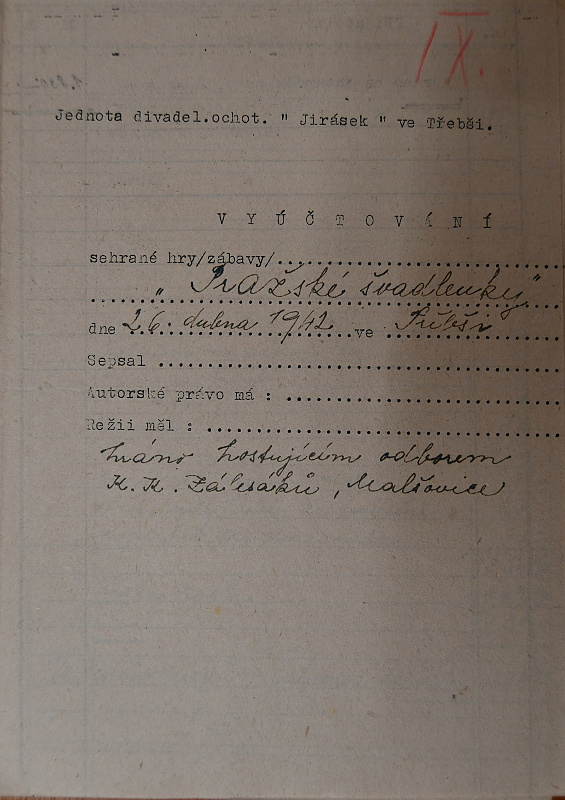 IX.
Jednota divadel.ochot. " Jirásek " ve Třebši.
VYÚČTOVÁNÍ
sehrané hry/zábavy/..............................
„ Pražské švadlenky"
dne 26. dubna 1942 ve Třebši
Sepsal ..............................
Autorské právo má : ..............................
Režii měl : ..............................
hráno hostujícím odborem
K. K. Zálesáků, Malšovice